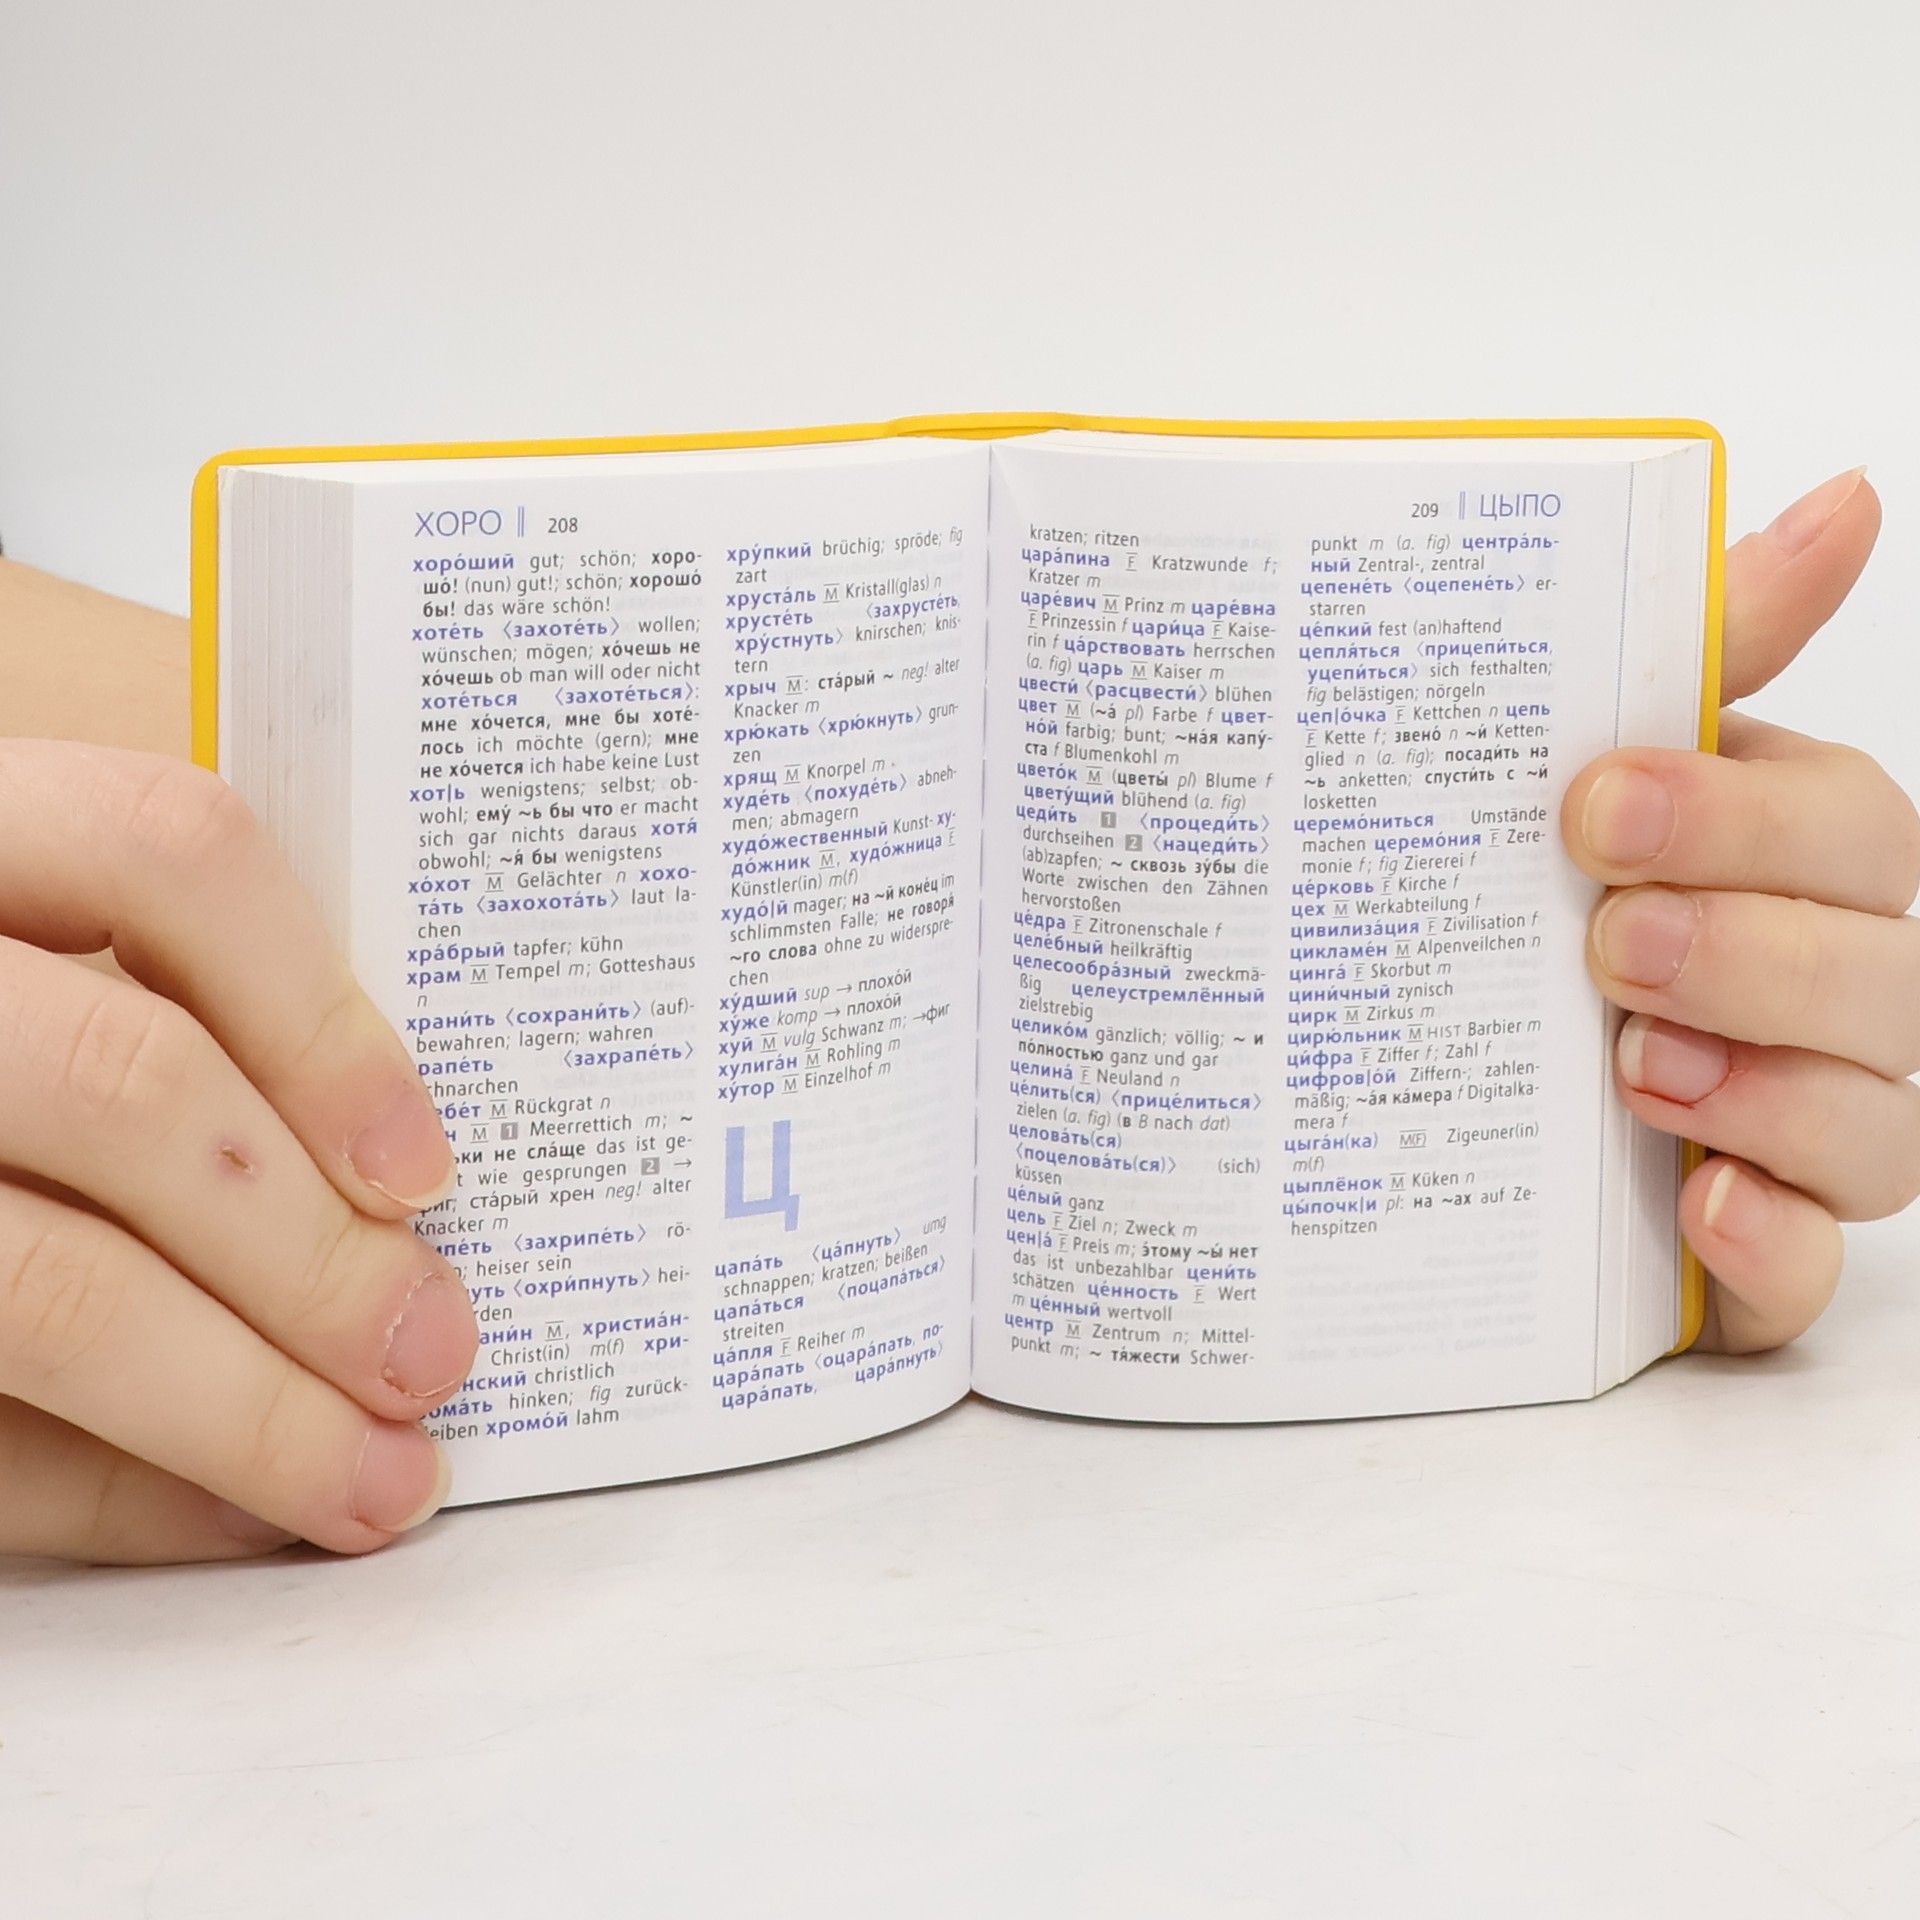 ХОРО || 208
хоро́ший gut; schön; хоро-
шо́! (nun) gut!; schön; хорошо́
бы! das wäre schön!
хоте́ть 〈захоте́ть〉 wollen;
wünschen; mögen; хо́чешь не
хо́чешь ob man will oder nicht
хоте́ться 〈захоте́ться〉:
мне хо́чется, мне бы хоте́-
лось ich möchte (gern); мне
не хо́чется ich habe keine Lust
хот|ь wenigstens; selbst; ob-
wohl; ему́ ~ь бы что er macht
sich gar nichts daraus хотя́
obwohl; ~я́ бы wenigstens
хо́хот M Gelächter n хохо-
та́ть 〈захохота́ть〉 laut la-
chen
хра́брый tapfer; kühn
храм M Tempel m; Gotteshaus
n
храни́ть 〈сохрани́ть〉 (auf)-
bewahren; lagern; wahren
рапе́ть 〈захрапе́ть〉
chnarchen
ебе́т M Rückgrat n
н M 1 Meerrettich m; ~
ьки не сла́ще das ist ge-
t wie gesprungen 2 →
иг; ста́рый хрен neg! alter
Knacker m
ипе́ть 〈захрипе́ть〉 rö-
; heiser sein
нуть 〈охри́пнуть〉 hei-
rden
ани́н M, христиа́н-
Christ(in) m(f) хри-
нский christlich
ома́ть hinken; fig zurück-
leiben хромо́й lahm
хру́пкий brüchig; spröde; fig
zart
хруста́ль M Kristall(glas) n
хрусте́ть 〈захрусте́ть,
хру́стнуть〉 knirschen; knis-
tern
хрыч M: ста́рый ~ neg! alter
Knacker m
хрю́кать 〈хрю́кнуть〉 grun-
zen
хрящ M Knorpel m
худе́ть 〈похуде́ть〉 abneh-
men; abmagern
худо́жественный Kunst- ху-
до́жник M, худо́жница F
Künstler(in) m(f)
худо́|й mager; на ~й коне́ц im
schlimmsten Falle; не говоря́
~го слова ohne zu widerspre-
chen
ху́дший sup → плохо́й
ху́же komp → плохо́й
хуй M vulg Schwanz m; →фиг
хулига́н M Rohling m
ху́тор M Einzelhof m
Ц
цапа́ть 〈ца́пнуть〉 umg
schnappen; kratzen; beißen
цапа́ться 〈поцапа́ться〉
streiten
ца́пля F Reiher m
цара́пать 〈оцара́пать, по-
цара́пать, цара́пнуть〉
209 || ЦЫПО
kratzen; ritzen
цара́пина F Kratzwunde f;
Kratzer m
царе́вич M Prinz m царе́вна
F Prinzessin f цари́ца F Kaise-
rin f ца́рствовать herrschen
(a. fig) царь M Kaiser m
цвести́ 〈расцвести́〉 blühen
цвет M (~а́ pl) Farbe f цвет-
но́й farbig; bunt; ~на́я капу́-
ста f Blumenkohl m
цвето́к M (цветы́ pl) Blume f
цвету́щий blühend (a. fig)
цеди́ть 1 〈процеди́ть〉
durchseihen 2 〈нацеди́ть〉
(ab)zapfen; ~ сквозь зу́бы die
Worte zwischen den Zähnen
hervorstoßen
це́дра F Zitronenschale f
целе́бный heilkräftig
целесообра́зный zweckmä-
ßig целеустремлённый
zielstrebig
целико́м gänzlich; völlig; ~ и
по́лностью ganz und gar
целина́ F Neuland n
це́лить(ся) 〈прице́литься〉
zielen (a. fig) (в B nach dat)
целова́ть(ся)
〈поцелова́ть(ся)〉 (sich)
küssen
це́лый ganz
цель F Ziel n; Zweck m
цен|а́ F Preis m; э́тому ~ы́ нет
das ist unbezahlbar цени́ть
schätzen це́нность F Wert
m це́нный wertvoll
центр M Zentrum n; Mittel-
punkt m; ~ тя́жести Schwer-
punkt m (a. fig) центра́ль-
ный Zentral-, zentral
цепене́ть 〈оцепене́ть〉 er-
starren
це́пкий fest (an)haftend
цепля́ться 〈прицепи́ться,
уцепи́ться〉 sich festhalten;
fig belästigen; nörgeln
цеп|о́чка F Kettchen n цепь
F Kette f; звено́ n ~и́ Ketten-
glied n (a. fig); посади́ть на
~ь anketten; спусти́ть с ~и́
losketten
церемо́ниться Umstände
machen церемо́ния F Zere-
monie f; fig Ziererei f
це́рковь F Kirche f
цех M Werkabteilung f
цивилиза́ция F Zivilisation f
цикламе́н M Alpenveilchen n
цинга́ F Skorbut m
цини́чный zynisch
цирк M Zirkus m
цирю́льник M HIST Barbier m
ци́фра F Ziffer f; Zahl f
цифров|о́й Ziffern-; zahlen-
mäßig; ~а́я ка́мера f Digitalka-
mera f
цыга́н(ка) M(F) Zigeuner(in)
m(f)
цыплёнок M Küken n
цы́почк|и pl: на ~ах auf Ze-
henspitzen